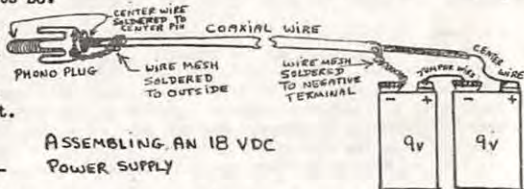 CENTER WIRE
SOLDERED TO
CENTER PIN
COAXIAL WIRE
PHONO PLUG
WIRE MESH
SOLDERED
TO OUTSIDE
WIRE MESH
SOLDERED
TO NEGATIVE
TERMINAL
JUMPER WIRE
CENTER
WIRE
- + - +
9v 9v
t.
ASSEMBLING AN 18 VDC
POWER SUPPLY